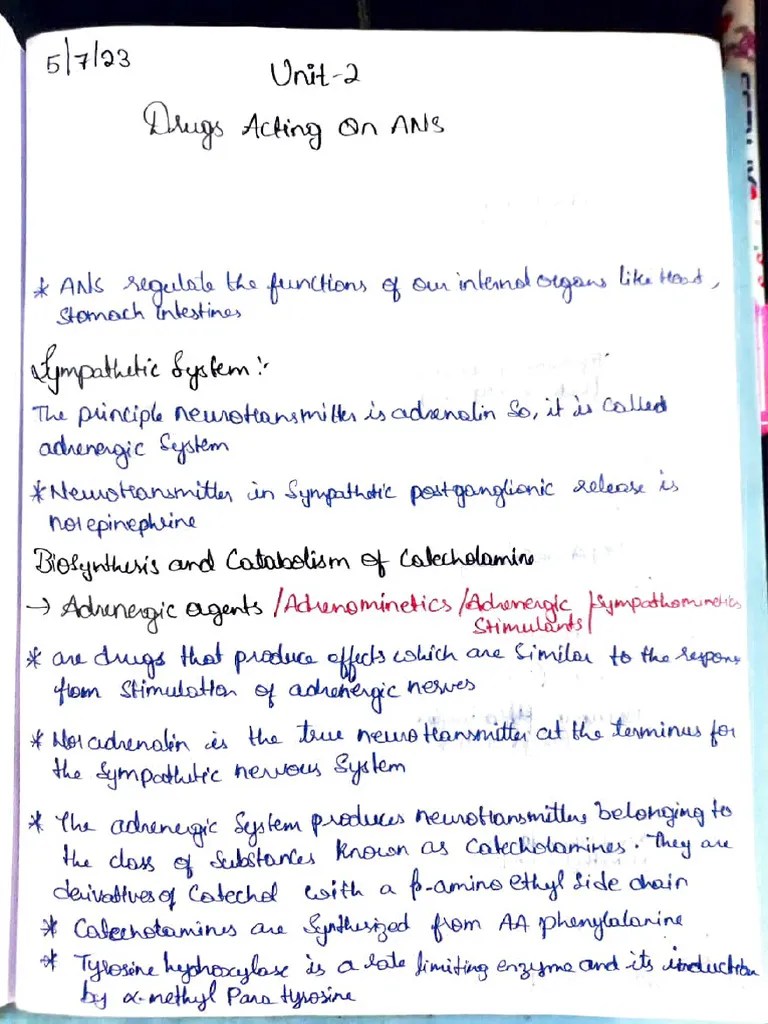 5/7/23
Unit-2
Drugs Acting On ANS
* ANS regulate the functions of our internal organs like Heart,
Stomach Intestines
Sympathetic System :-
The principle neurotransmitter is adrenalin So, it is called
adrenergic System
* Neurotransmitter in Sympathetic postganglionic release is
norepinephrine
Biosynthesis and Catabolism of Catecholamine
→ Adrenergic agents /Adrenominetics /Adrenergic /Sympathominetics
Stimulants/
* are drugs that produce effects which are Similar to the respons
from Stimulation of adrenergic nerves
* Noradrenalin is the true neurotransmitter at the terminus for
the Sympathetic nervous System
* The adrenergic System produces neurotransmitters belonging to
the class of Substances known as Catecholamines. They are
derivatives of Catechol with a β-amino ethyl Side chain
* Catecholamines are Synthesized from AA phenylalanine
* Tyrosine hydroxylase is a rate limiting enzyme and its induction
by α-methyl Para tyrosine